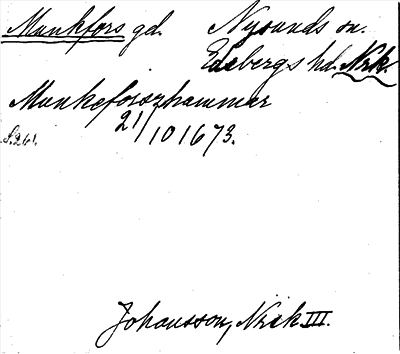 Munkfors gd. Nysunds sn.
Edsbergs hd. Nrk.
Munkeforszhammar
21/10 1673.
S. 261.
Johansson, Nrik III.